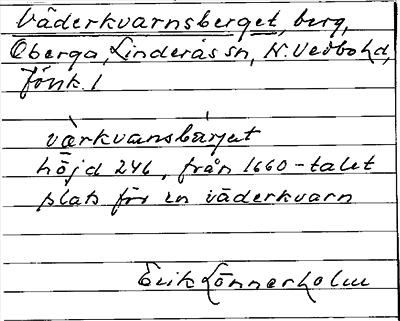 Väderkvarnsberget, berg,
Oberga, Linderås sn, N. Vedbo hd,
Jönk. l
vàrkvansbärjet
höjd 246, från 1660-talet
plats för en väderkvarn
Erik Lönnerholm